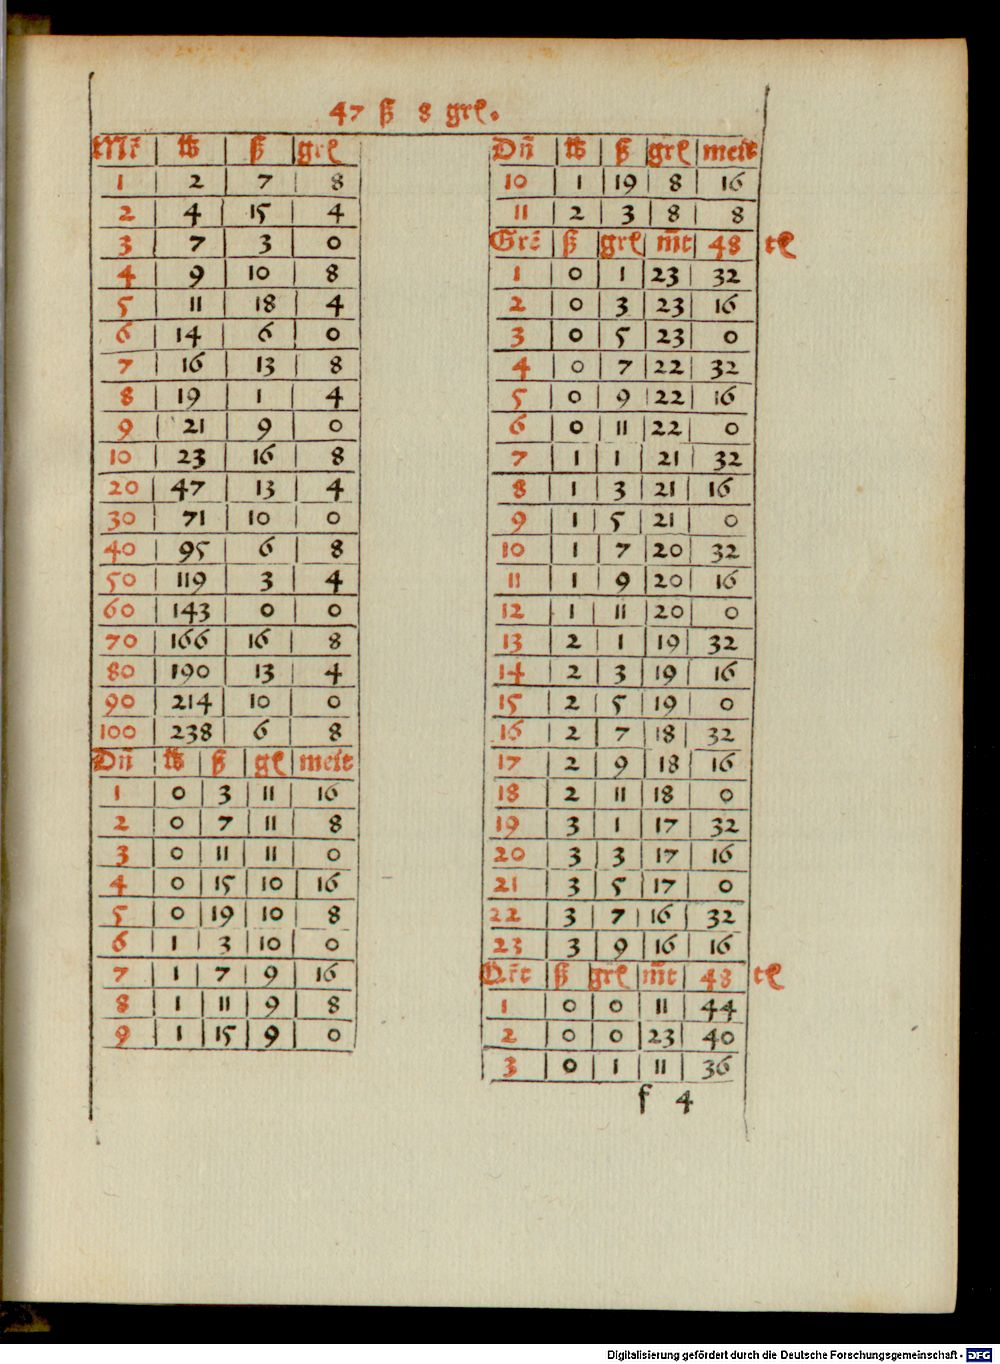 47 ß 8 grł.
Mr̃ | ℔ | ß | grł
1 | 2 | 7 | 8
2 | 4 | 15 | 4
3 | 7 | 3 | 0
4 | 9 | 10 | 8
5 | 11 | 18 | 4
6 | 14 | 6 | 0
7 | 16 | 13 | 8
8 | 19 | 1 | 4
9 | 21 | 9 | 0
10 | 23 | 16 | 8
20 | 47 | 13 | 4
30 | 71 | 10 | 0
40 | 95 | 6 | 8
50 | 119 | 3 | 4
60 | 143 | 0 | 0
70 | 166 | 16 | 8
80 | 190 | 13 | 4
90 | 214 | 10 | 0
100 | 238 | 6 | 8
Dn̄ | ℔ | ß | gł | meit
1 | 0 | 3 | 11 | 16
2 | 0 | 7 | 11 | 8
3 | 0 | 11 | 11 | 0
4 | 0 | 15 | 10 | 16
5 | 0 | 19 | 10 | 8
6 | 1 | 3 | 10 | 0
7 | 1 | 7 | 9 | 16
8 | 1 | 11 | 9 | 8
9 | 1 | 15 | 9 | 0
Dn̄ | ℔ | ß | grł | meit
10 | 1 | 19 | 8 | 16
11 | 2 | 3 | 8 | 8
Grẽ | ß | grł | m̄t | 48 tł
1 | 0 | 1 | 23 | 32
2 | 0 | 3 | 23 | 16
3 | 0 | 5 | 23 | 0
4 | 0 | 7 | 22 | 32
5 | 0 | 9 | 22 | 16
6 | 0 | 11 | 22 | 0
7 | 1 | 1 | 21 | 32
8 | 1 | 3 | 21 | 16
9 | 1 | 5 | 21 | 0
10 | 1 | 7 | 20 | 32
11 | 1 | 9 | 20 | 16
12 | 1 | 11 | 20 | 0
13 | 2 | 1 | 19 | 32
14 | 2 | 3 | 19 | 16
15 | 2 | 5 | 19 | 0
16 | 2 | 7 | 18 | 32
17 | 2 | 9 | 18 | 16
18 | 2 | 11 | 18 | 0
19 | 3 | 1 | 17 | 32
20 | 3 | 3 | 17 | 16
21 | 3 | 5 | 17 | 0
22 | 3 | 7 | 16 | 32
23 | 3 | 9 | 16 | 16
Qr̃t | ß | grł | m̄t | 48 tł
1 | 0 | 0 | 11 | 44
2 | 0 | 0 | 23 | 40
3 | 0 | 1 | 11 | 36
f 4
Digitalisierung gefördert durch die Deutsche Forschungsgemeinschaft - DFG